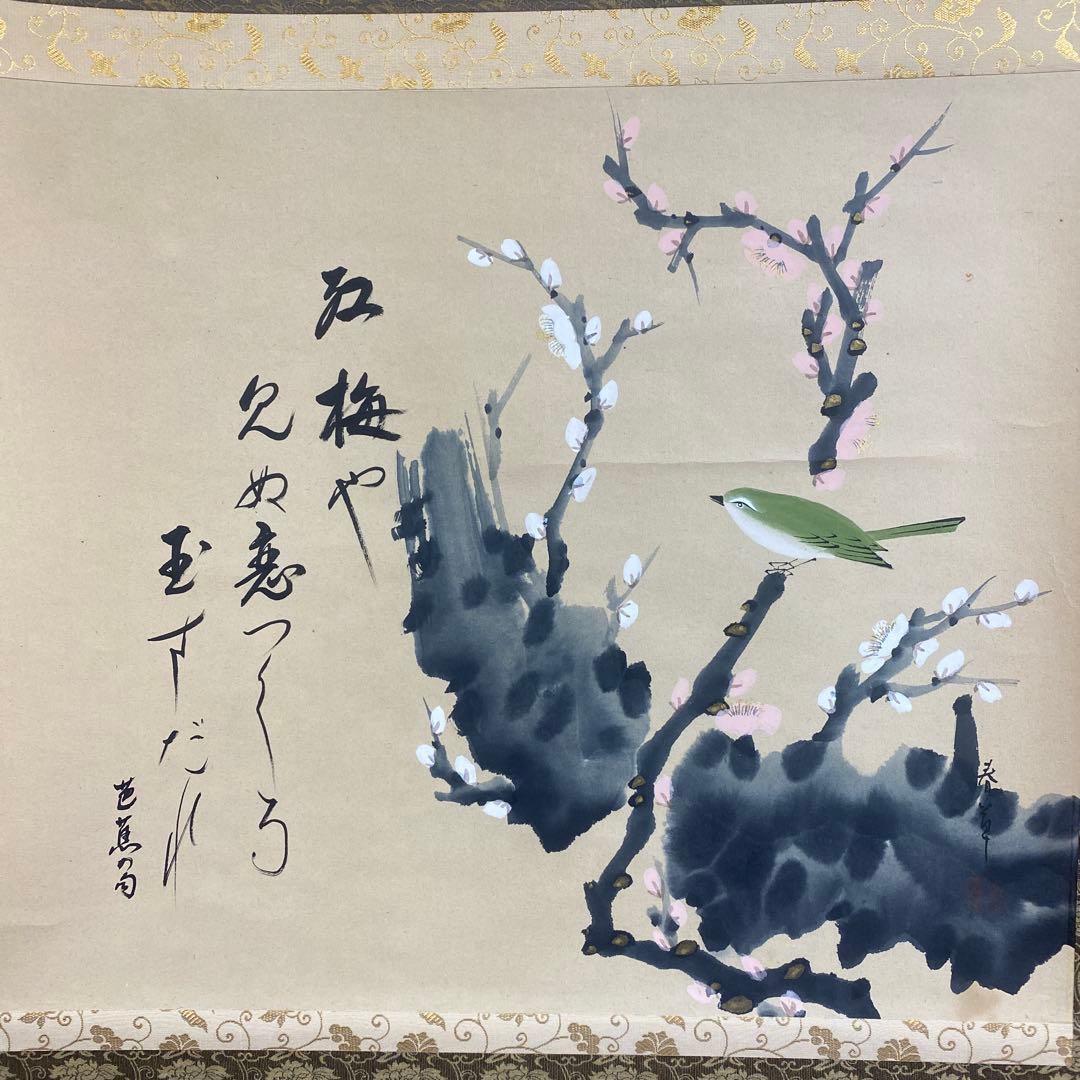 紅梅や
見ぬ恋つくる
玉すだれ
芭蕉の句
春草